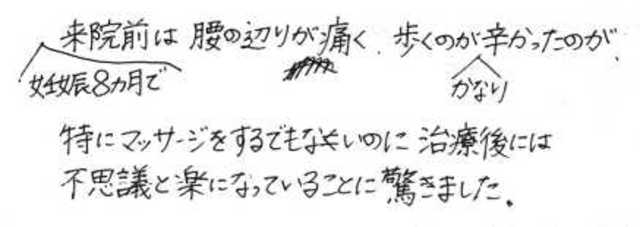 来院前は 腰の辺りが痛く、歩くのが辛かったのが、
妊娠8カ月で
かなり
特にマッサージをするでもないのに 治療後には
不思議と楽になっていることに驚きました。